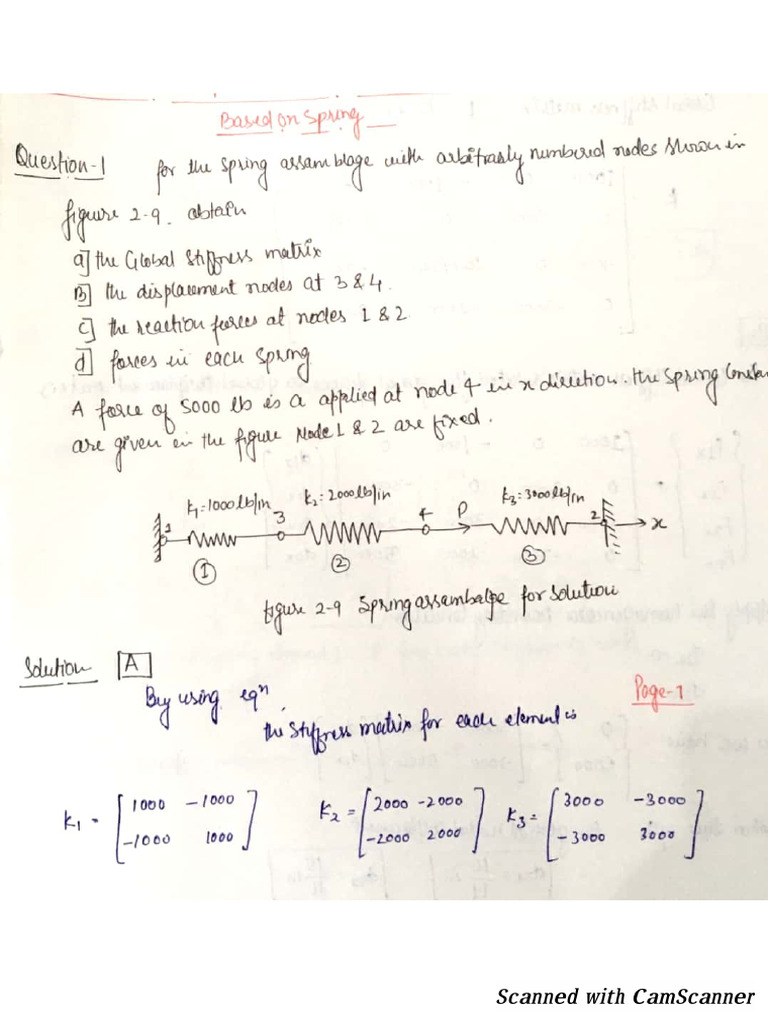 Based on Spring
Question-1 for the spring assamblage with arbitrasly numbered nodes shown in
figure 2-9. obtain
a] the Global Stiffness matrix
B] the displacement nodes at 3 & 4.
c] the reaction forces at nodes 1 & 2
d] forces in each Spring
A force of 5000 lb is a applied at node 4 in x direction. the Spring Constan
are given in the figure Node 1 & 2 are fixed.
K₁=1000lb/in K₂=2000lb/in K₃=3000lb/in
1 3 4 P 2 x
① ② ③
figure 2-9 Spring assambalge for solution
Solution A
By using eqⁿ. Page-1
the stiffness matrix for each element is
K₁ = [1000 -1000 K₂ = [2000 -2000 K₃ = [3000 -3000
-1000 1000] -2000 2000] -3000 3000]
Scanned with CamScanner